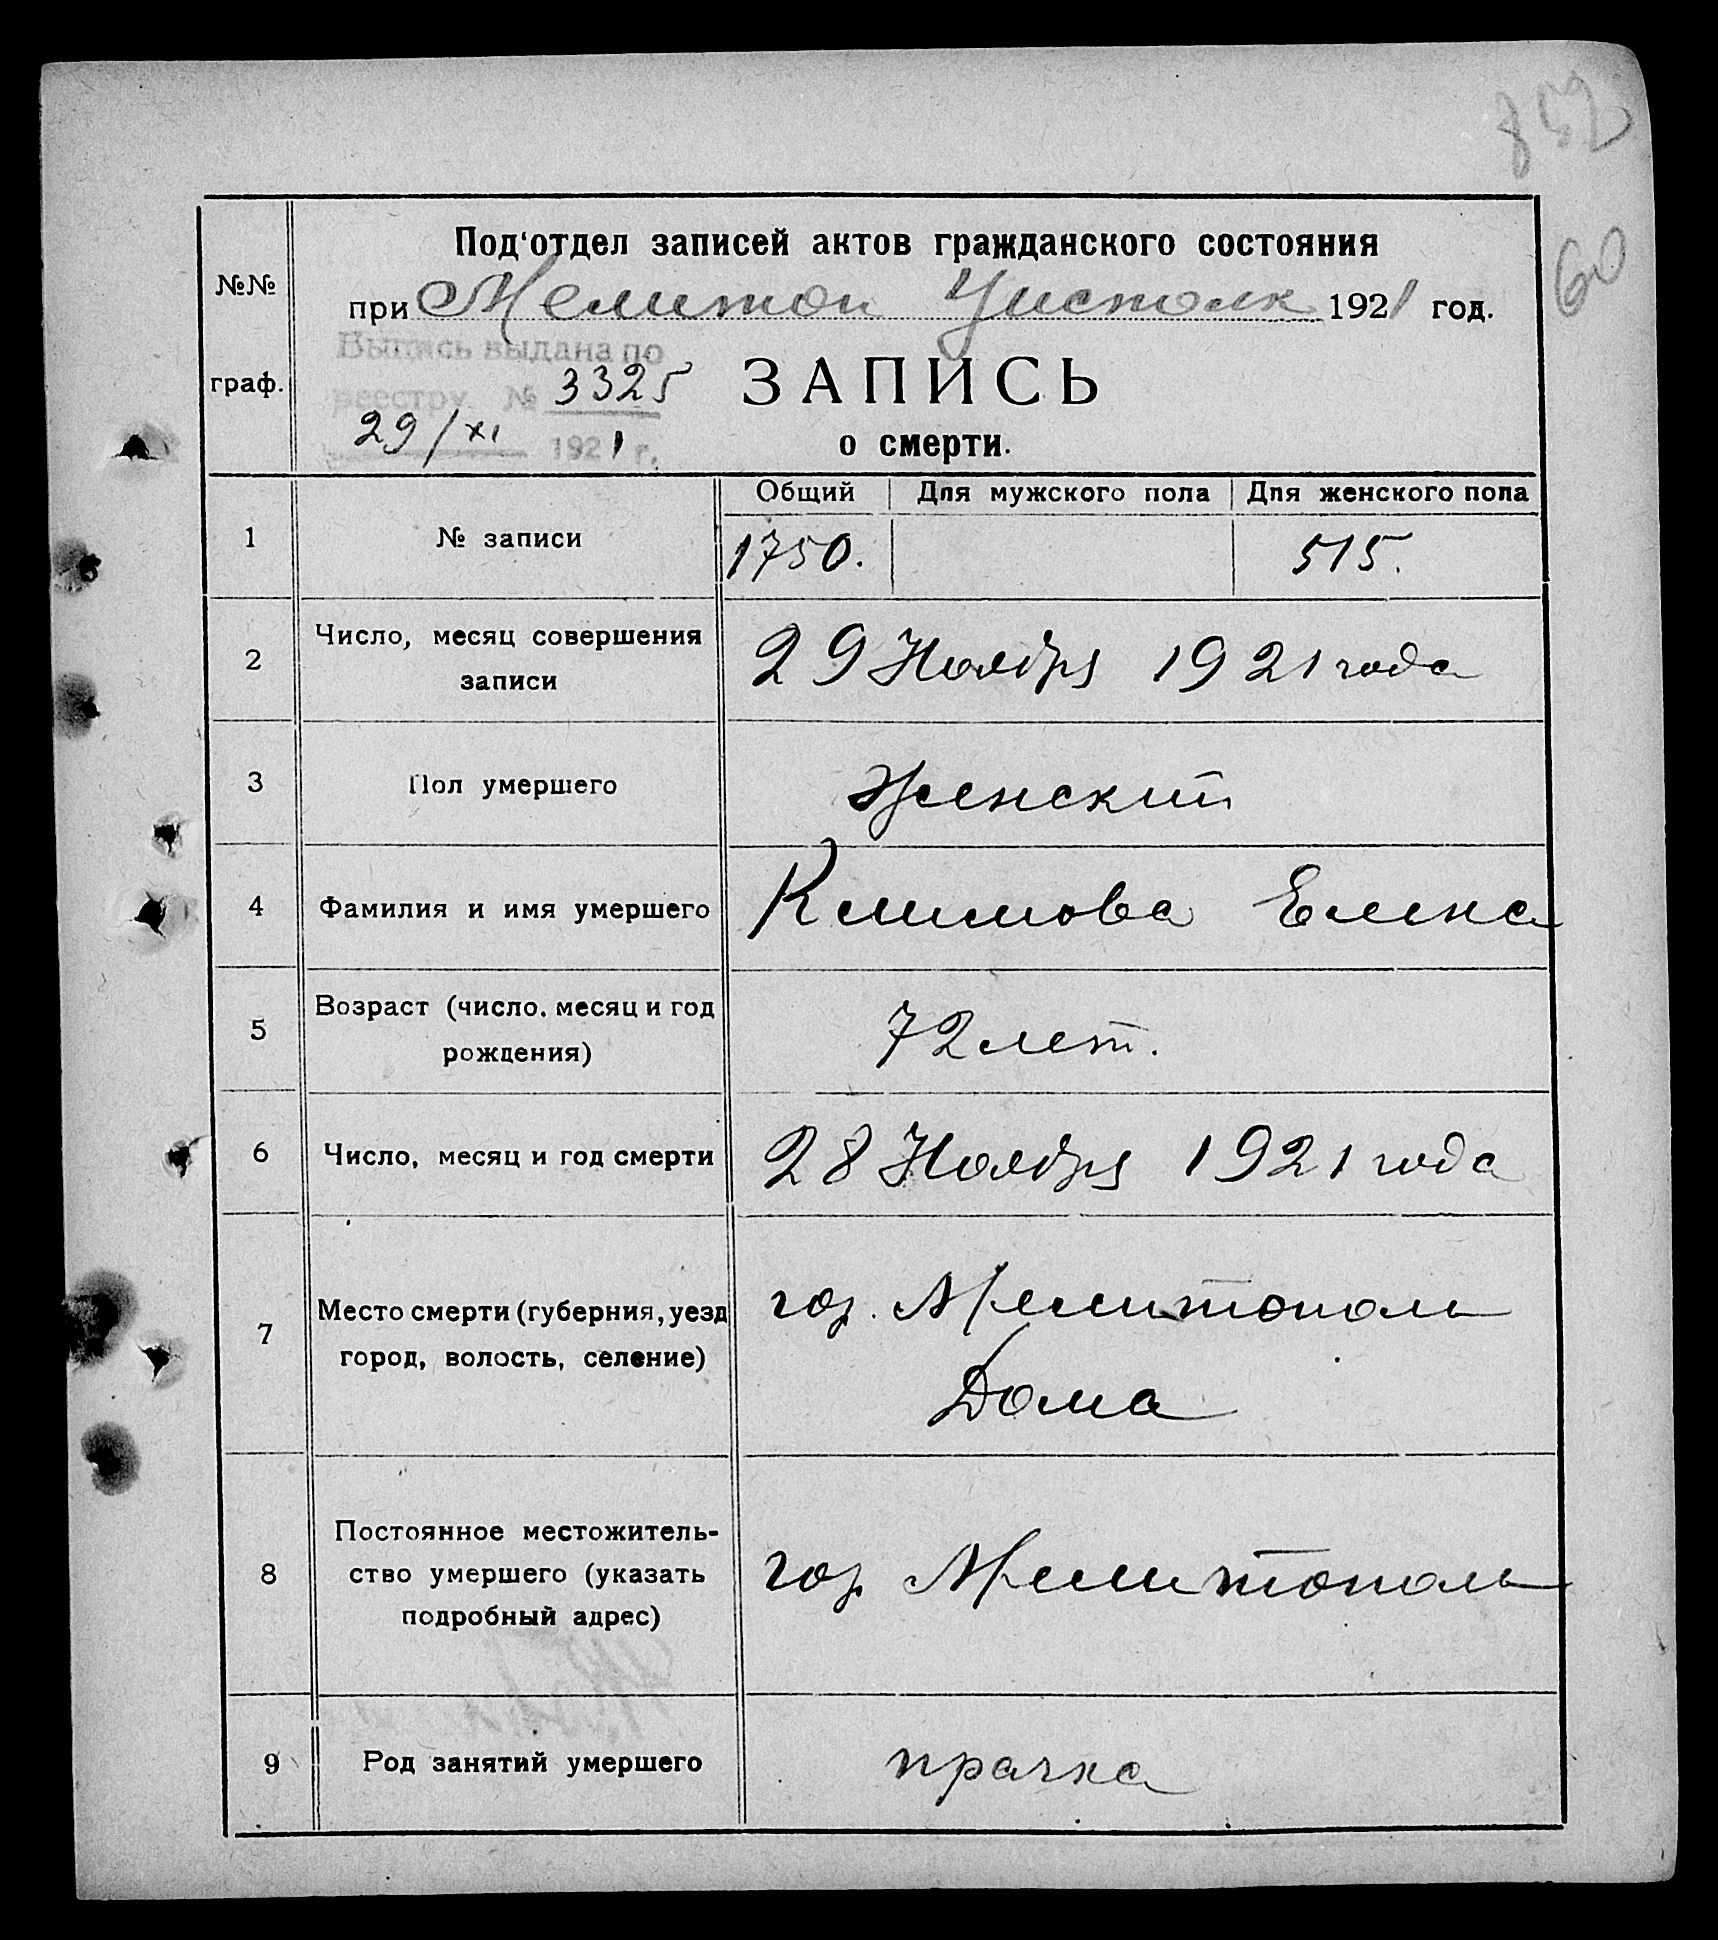 852
60
Под‘отдел записей актов гражданского состояния
№№
при Мелитоп Уисполк 1921 год.
Выпись выдана по
реестру № 3325
29/XI 1921 г.
граф.
ЗАПИСЬ
о смерти.
Общий Для мужского пола Для женского пола
1 № записи 1750. 515.
2 Число, месяц совершения
записи
29 Ноября 1921 года
3 Пол умершего женский
4 Фамилия и имя умершего Климова Елена
5 Возраст (число, месяц и год
рождения)
72 лет.
6 Число, месяц и год смерти 28 Ноября 1921 года
7 Место смерти (губерния, уезд
город, волость, селение)
гор. Мелитополь
Дома
8 Постоянное местожитель-
ство умершего (указать
подробный адрес)
гор Мелитополь
9 Род занятий умершего прачка